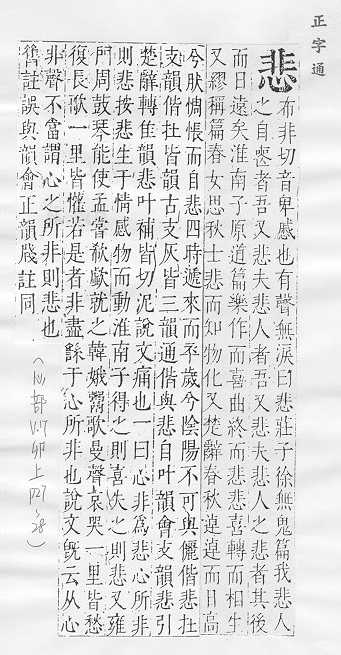 正字通
悲
布非切音卑慼也有聲無淚曰悲莊子徐無鬼篇我悲人
之自喪者吾又悲夫悲人者吾又悲夫悲人之悲者其後
而日遠矣淮南子原道篇樂作而喜曲終而悲悲喜轉而相生
又繆稱篇春女思秋士悲而知物化又楚辭春秋逴逴而日高
兮肰惆悵而自悲四時遞來而卒歲兮陰陽不可與儷偕悲在
支韻偕在皆韻古支灰皆三韻通偕與悲自叶韻會支韻悲引
楚辭轉隹韻悲叶補皆切況說文痛也一曰心非為悲心所非
則悲按悲生于情感物而動淮南子得之則喜失之則悲又雍
門周鼓琴能使孟嘗欷歔就之韓娥鬻歌曼聲哀哭一里皆愁
復長歌一里皆懽若是者非盡繇于心所非也說文旣云从心
非聲不當謂心之所非則悲也
舊註誤與韻會正韻牋註同
(心部 卯上 28)